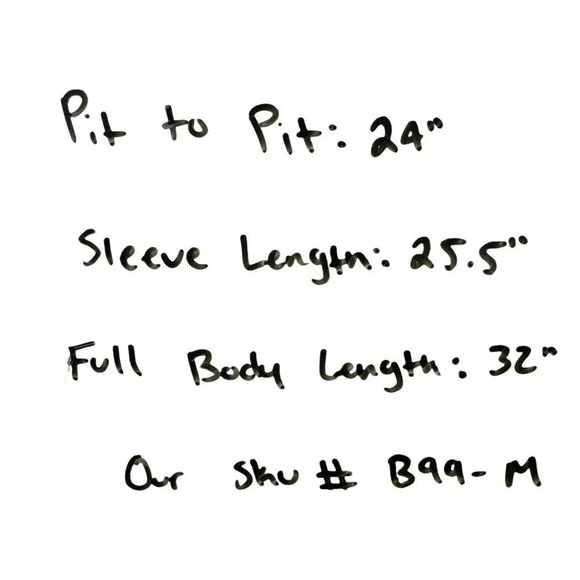 Pit to Pit: 24"
Sleeve Length: 25.5"
Full Body Length: 32"
Our Sku # B99-M